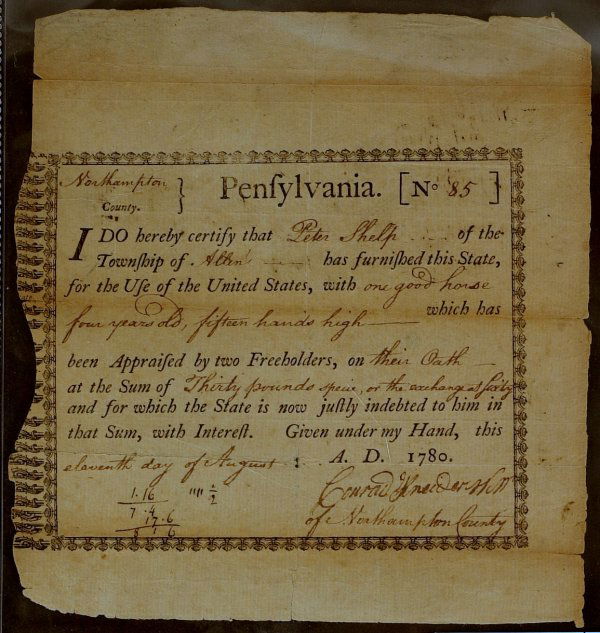 Northampton } Penſylvania. [No 85 ]
County.
I DO hereby certify that Peter Shelp of the
Townſhip of Allen has furniſhed this State,
for the Uſe of the United States, with one good horse
four years old, fifteen hands high — which has
been Appraiſed by two Freeholders, on their Oath
at the Sum of Thirty pounds specie, or the exchange at Sixty
and for which the State is now juſtly indebted to him in
that Sum, with Intereſt. Given under my Hand, this
eleventh day of August : A. D. 1780.
1.16
7.4
17.6
8 6
Conrad Kreider
of Northampton County